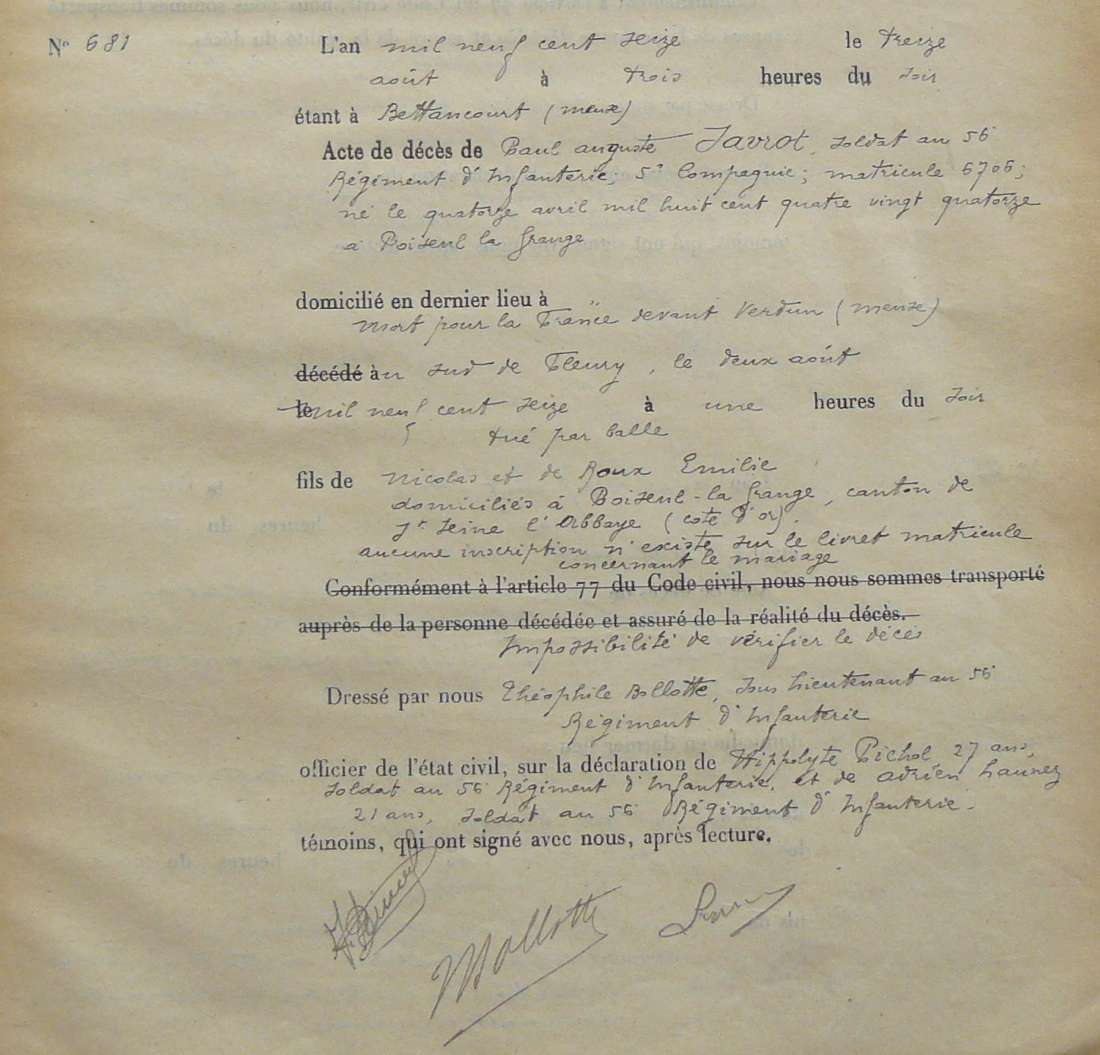 N° 681
L'an mil neuf cent seize le treize
août à trois heures du soir
étant à Bettancourt (meuse)
Acte de décès de Paul auguste Javrot, soldat au 56
Régiment d'Infanterie; 5e Compagnie; matricule 6706;
né le quatorze avril mil huit cent quatre vingt quatorze
a Poiseul la Grange
domicilié en dernier lieu à
mort pour la France devant Verdun (meuse)
décédé à au sud de Fleury, le deux août
le mil neuf cent seize à une heures du soir
tué par balle
fils de Nicolas et de Roux Emilie
domiciliés à Poiseul-la Grange, canton de
St Seine l'Abbaye (cote d'or).
aucune inscription n'existe sur le livret matricule
concernant le mariage
Conformément à l'article 77 du Code civil, nous nous sommes transporté
auprès de la personne décédée et assuré de la réalité du décès.
Impossibilité de vérifier le décès
Dressé par nous Théophile Bollotte, Sous Lieutenant au 56
Régiment d'Infanterie
officier de l'état civil, sur la déclaration de Hippolyte Pichol 27 ans,
soldat au 56 Régiment d'Infanterie, et de adrien Launez
21 ans, soldat au 56 Régiment d'Infanterie.
témoins, qui ont signé avec nous, après lecture.
Bollotte